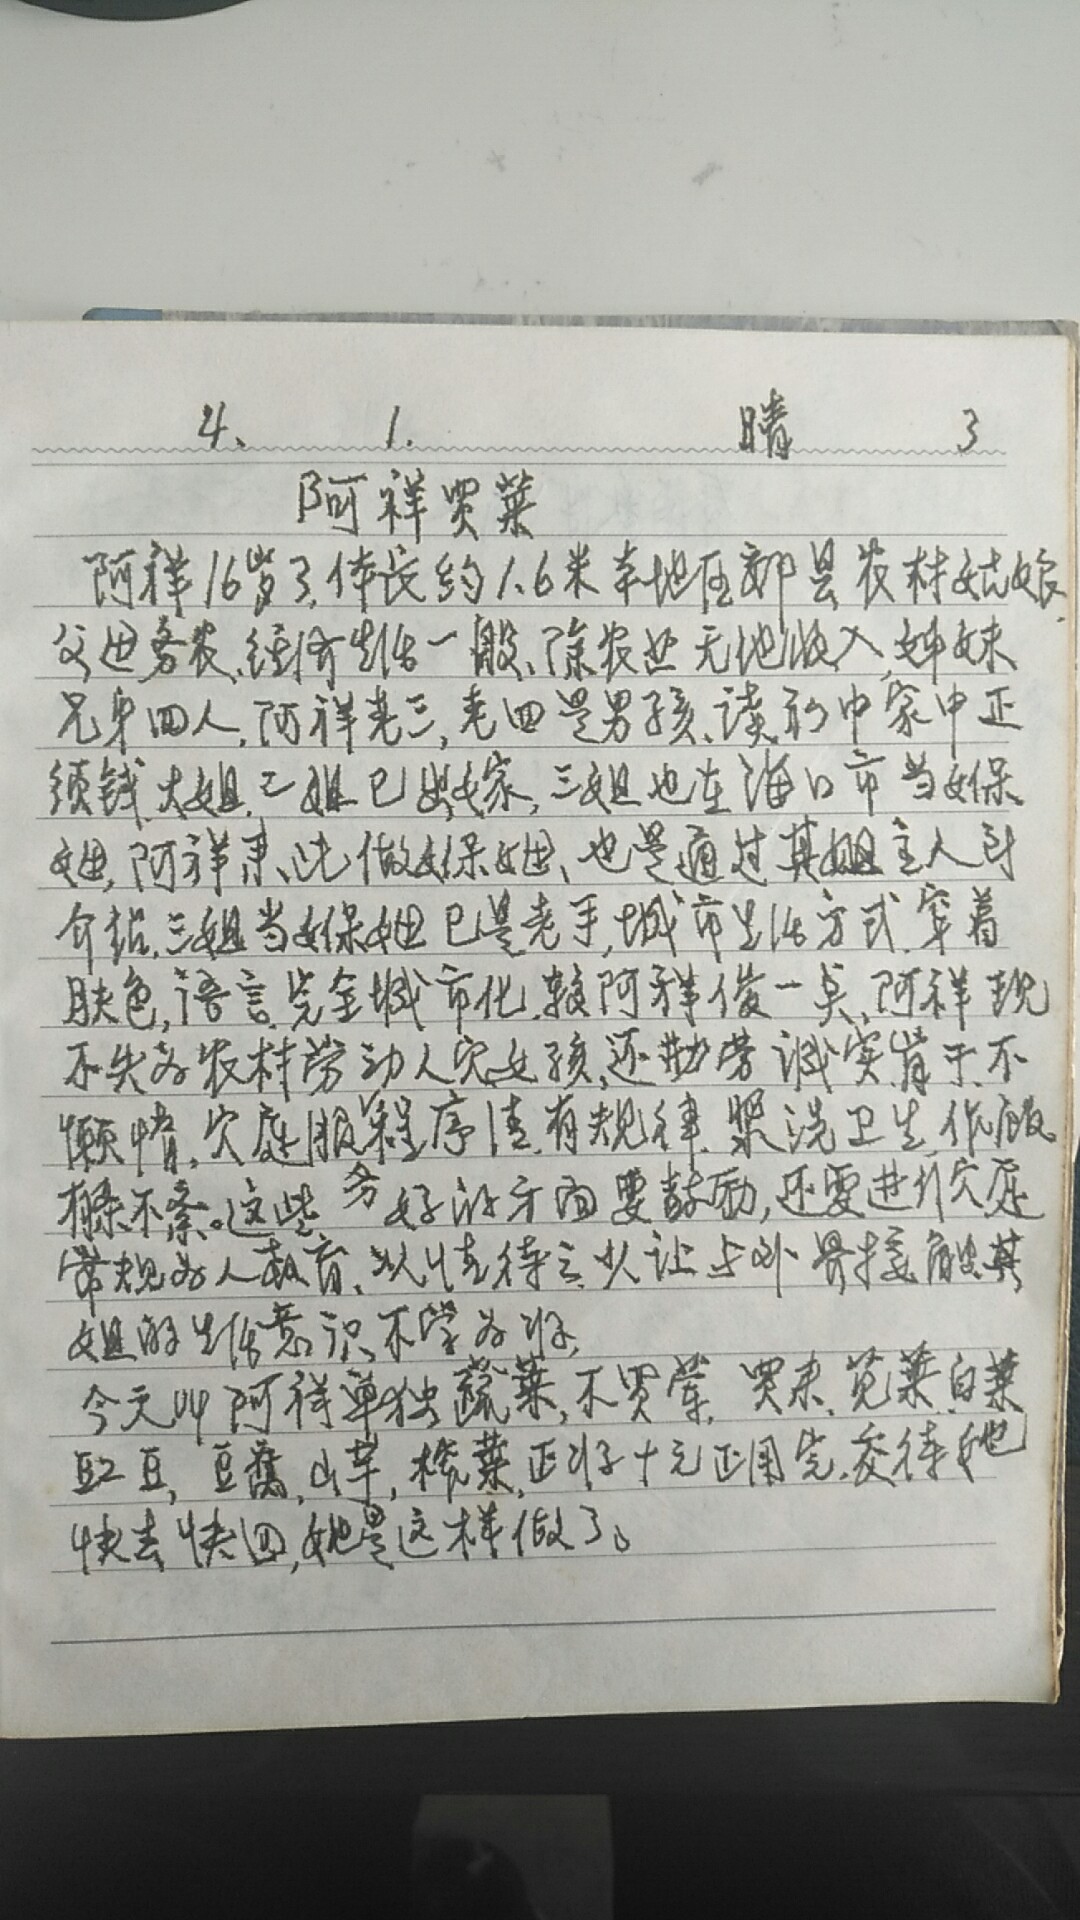 4. 1. 晴 3
阿祥买菜
阿祥16岁了,体长约1.6米本地区郊县农村姑娘.
父母务农,经济生活一般、除农业无他收入,姊妹
兄弟四人,阿祥老三,老四是男孩、读初中家中正
须钱.大姐.二姐已出嫁,三姐也在海口市当女保
姆,阿祥来此做女保姆、也是通过其姐主人
介绍.三姐当女保姆已是老手,城市生活方式.穿着
肤色,语言.完全城市化.较阿祥俊一点,阿祥现
不失为农村劳动人家女孩,还勤劳诚实肯干.不
懒惰,家庭服务程序清.有规律.洗卫生.作做
有条不紊。这些好的方面要鼓励,还要进行家庭
常规为人教育、以情待之.少让与外界接触其
姐的生活意识不学为好,
今天叫阿祥单独蔬菜,不买荤,买来.苋菜.白菜
豇豆,豆腐,山草,榨菜,正好十元正用完.交待她
快去快回,她是这样做了。